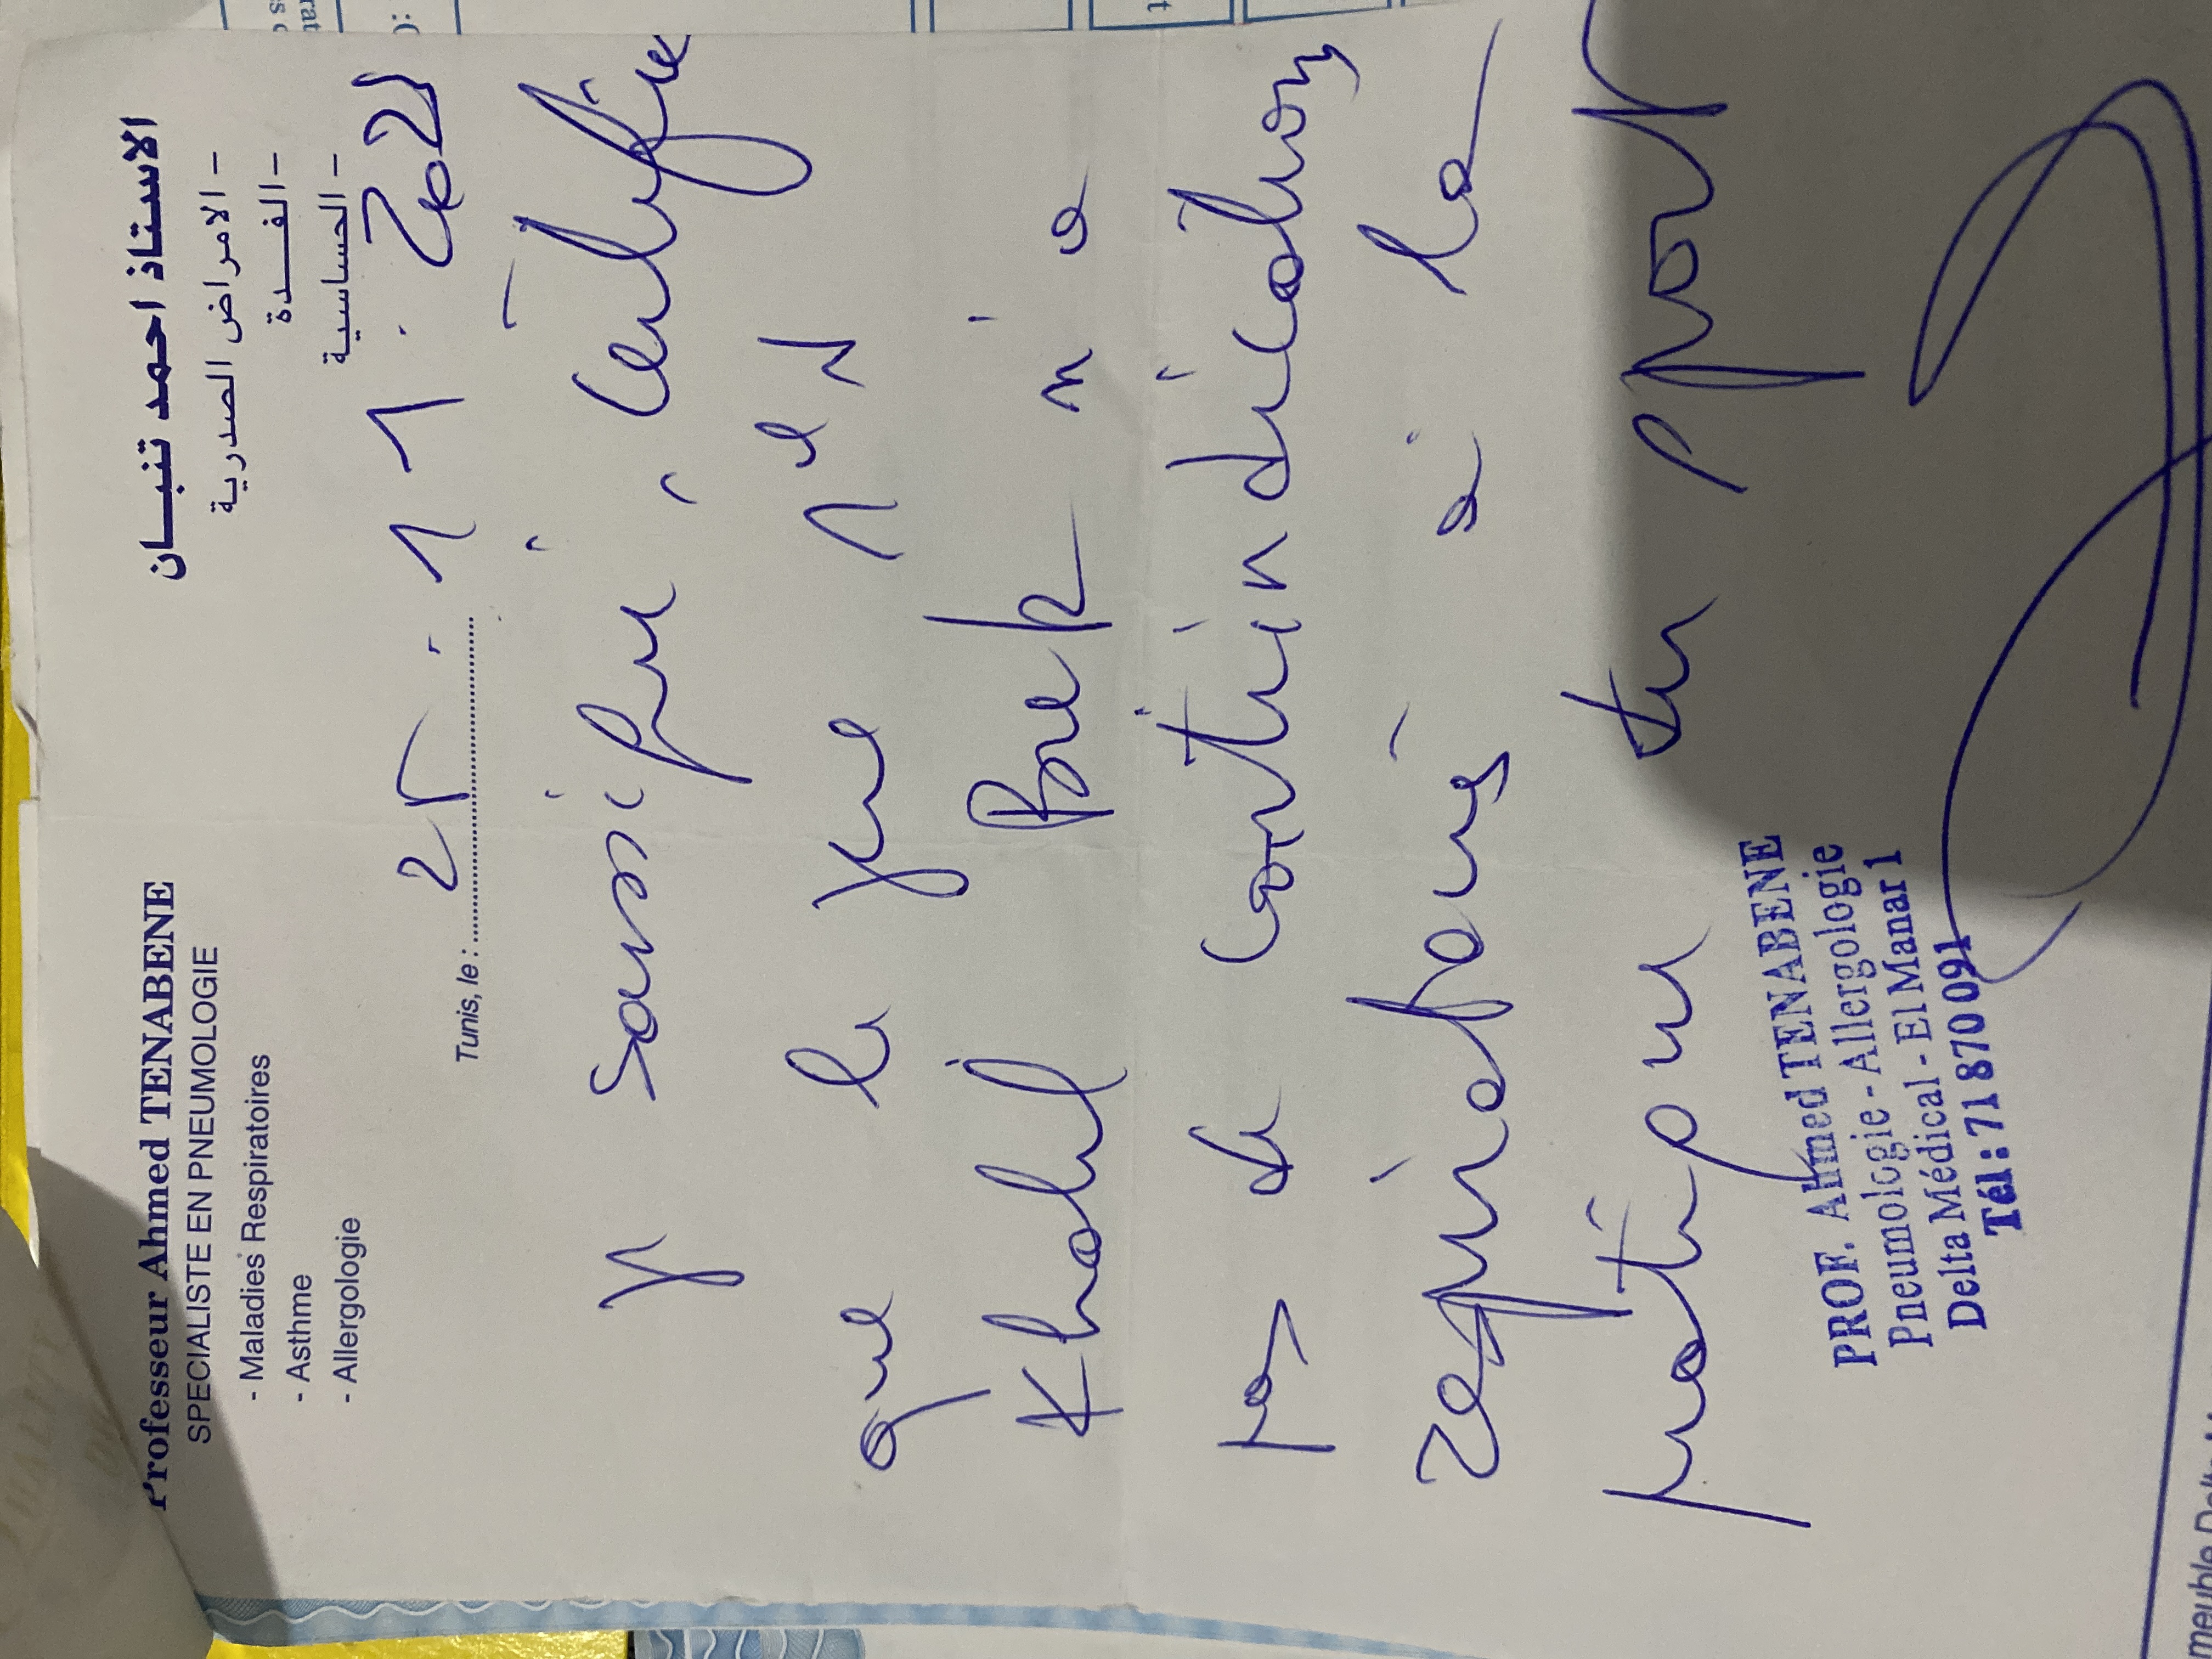 Professeur Ahmed TENABENE
SPECIALISTE EN PNEUMOLOGIE
- Maladies Respiratoires
- Asthme
- Allergologie
الاستاذ احمد تنبان
- الامراض الصدرية
- الغدة
- الحساسية
Tunis, le : 25.11.202
Je soussigné, certifie
que le jeune
Khalil n'a
pas de contrindications
respiratoires à la
pratique du sport
PROF. Ahmed TENABENE
Pneumologie - Allergologie
Delta Médical - El Manar 1
Tél : 71 870 091